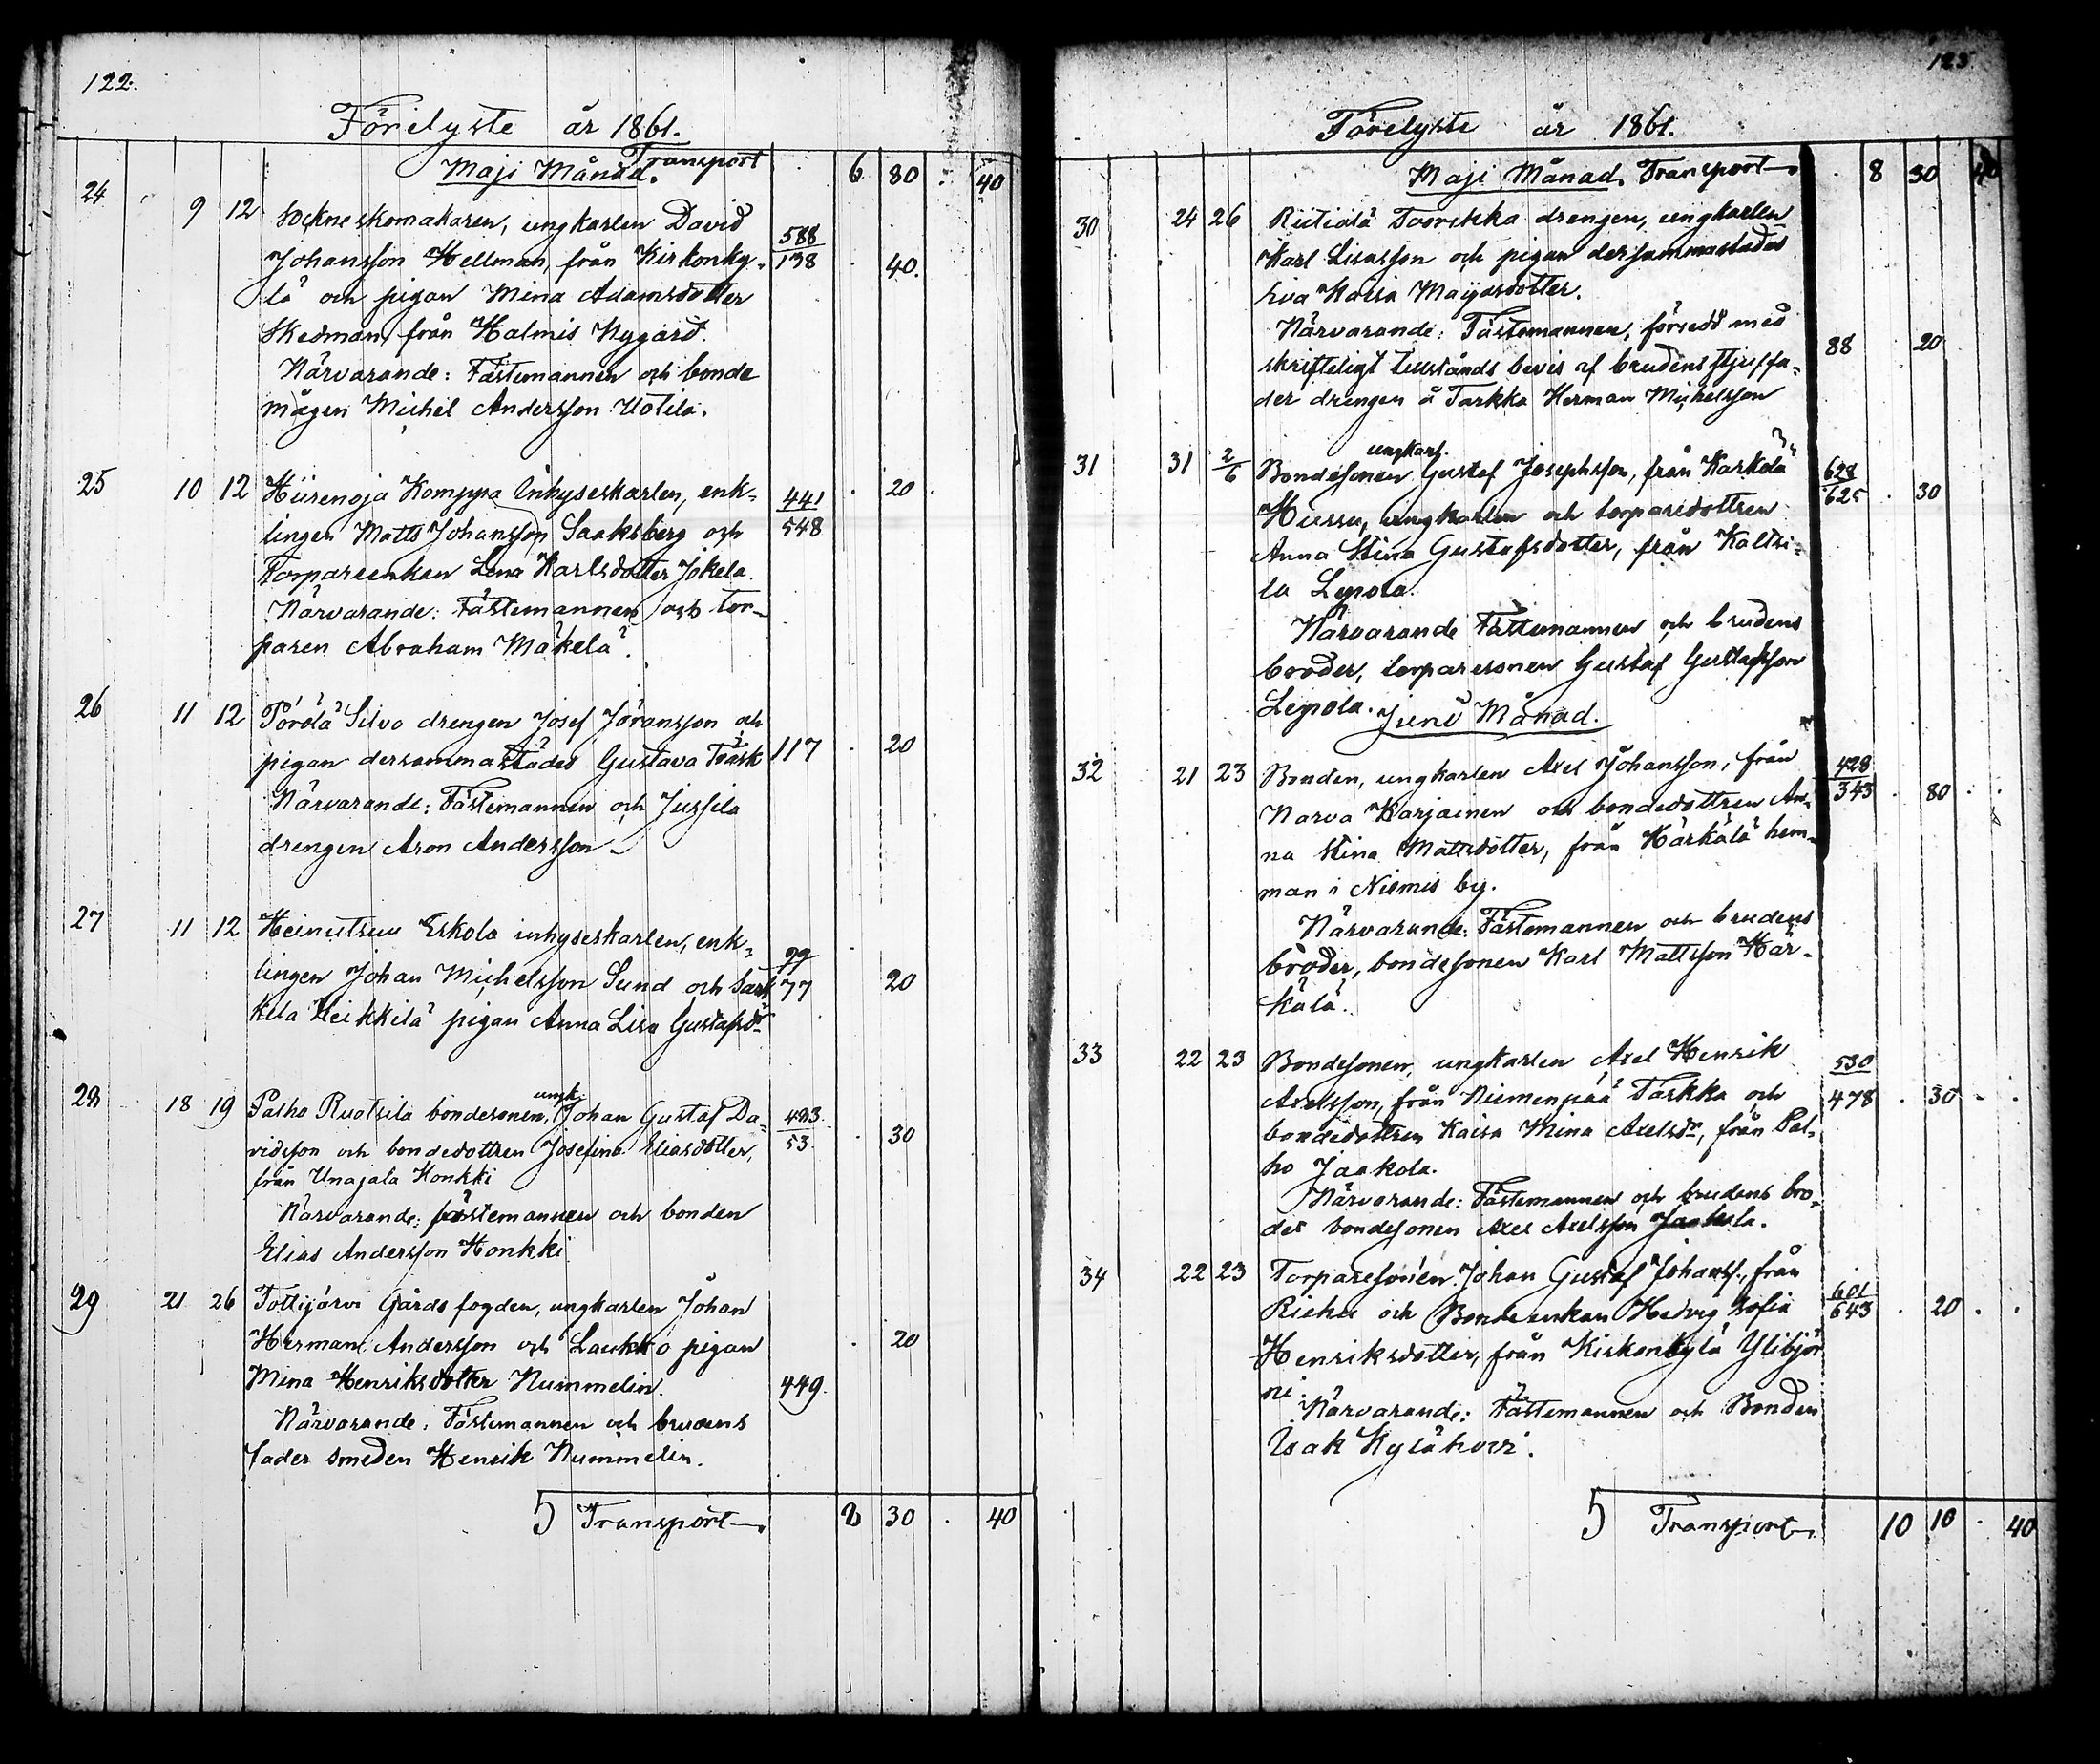 122.
Förelyste år 1861.
Maji Månad. Transport 6 80 40
24 9 12 Sockneskomakaren, ungkarlen David 588
Johansson Hellman, från Kirkonky- 138 40.
lä och pigan Mina Adamsdotter
Skedman, från Halmis Nygård.
Närvarande: Fästemannen och bonde
mågen Michel Andersson Uotila.
25 10 12 Hiirenoja Komppa Inhyseskarlen, enk- 441 20
lingen Matts Johansson Saaksberg och 548
Torpareenkan Lena Karlsdotter Jokela.
Närvarande: Fästemannen och tor-
paren Abraham Mäkelä.
26 11 12 Pörölä Silvo drengen Josef Jöransson och
pigan dersammastädes Gustava Träsk 117 20
Närvarande: Fästemannen och Jussila
drengen Aron Andersson
27 11 12 Heinutsuu Eskola inhyseskarlen, enk-
lingen Johan Michelsson Sund och Särk 77 20
kelä Heikkilä pigan Anna Lisa Gustafsdr
28 18 19 Palho Ruotsila bondesonen, ungk. Johan Gustaf Da- 493
vidsson och bondedottren Josefina Eliasdotter, 53. 30
från Unajala Honkki
Närvarande: fästemannen och bonden
Elias Andersson Honkki
29 21 26 Tottijärvi Gårds fogden, ungkarlen Johan
Herman Andersson och Laukko pigan 20
Mina Henriksdotter Nummelin. 449.
Närvarande: Fästemannen och brudens
fader smeden Henrik Nummelin.
5 Transport 8 30 40
123
Förelyste år 1861.
Maji Månad. Transport 8 30 40
30 24 26 drengen, ungkarlen
Karl Lisasson och pigan dersammastädes
Eva Kaisa Maijasdotter.
Närvarande: Fästemannen, försedd med
skrifteligt tillstånds bevis af brudens stjuffa- 88 20
der drengen å Tarkka Herman Michelsson
31 31 2/6 Bondesonen ungkarl. Gustaf Josephsson, från Karkola 628
Hussu, ungkarlen och torparedottren 625 30
Anna Stina Gustafsdotter, från Kaltsi-
la Lepola.
Närvarande Fästemannen och brudens
broder, torparesonen Gustaf Gustafsson
Lepola.
Juni Månad.
32 21 23 Bonden, ungkarlen Axel Johansson, från 428
Narva Karjainen och bondedottren An- 343 80
na Stina Mattsdotter, från Härkälä hem-
man i Niemis by.
Närvarande: Fästemannen och brudens
broder, bondesonen Karl Mattsson Här-
kälä.
33 22 23 Bondesonen, ungkarlen Axel Henrik 530
Axelsson, från Niemenpää Tarkka och 478 30
bondedottren Kaisa Mina Axelsdr, från Pal-
ho Jaakola.
Närvarande: Fästemannen och brudens bro-
der bondesonen Axel Axelsson Jaakola.
34 22 23 Torparesonen Johan Gustaf Johanss., från 601
Riehu och Bondeenkan Hedvig Sofia 643 20
Henriksdotter, från Kirkonkylä Ylibjör
ni.
Närvarande: Fästemannen och Bonden
Isak Kylähovi.
5 Transport 10 10 40